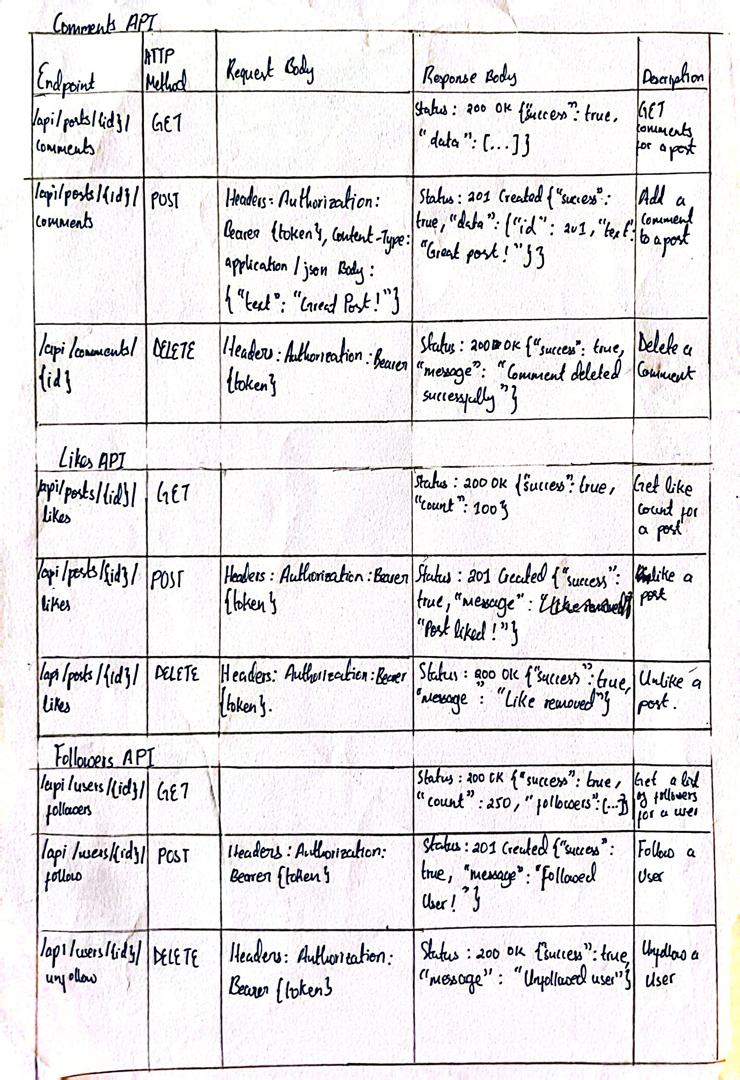 Comments API
Endpoint
HTTP
Method
Request Body
Response Body
Description
/api/posts/{id}/
comments
GET
Status : 200 OK {"success": true,
"data": [...]}
GET
comments
for a post
/api/posts/{id}/
comments
POST
Headers: Authorization:
Bearer {token}, Content-Type:
application/json Body:
{"text": "Great Post!"}
Status : 201 Created {"success":
true, "data": {"id": 201, "text":
"Great post!"}}
Add a
comment
to a post
/api/comments/
{id}
DELETE
Headers: Authorization: Bearer
{token}
Status : 200 OK {"success": true,
"message": "Comment deleted
successfully"}
Delete a
Comment
Likes API
/api/posts/{id}/
likes
GET
Status : 200 OK {"success": true,
"count": 100}
Get like
count for
a post
/api/posts/{id}/
likes
POST
Headers : Authorization : Bearer
{token}
Status : 201 Created {"success":
true, "message":
"Post liked!"}
like a
post
/api/posts/{id}/
likes
DELETE
Headers: Authorization: Bearer
{token}.
Status : 200 OK {"success": true,
"message": "Like removed"}
Unlike a
post.
Followers API
/api/users/{id}/
followers
GET
Status : 200 OK {"success": true,
"count": 250, "followers": [...]}
Get a list
of followers
for a user
/api/users/{id}/
follow
POST
Headers : Authorization:
Bearer {token}
Status : 201 Created {"success":
true, "message": "Followed
User!"}
Follow a
User
/api/users/{id}/
unfollow
DELETE
Headers: Authorization:
Bearer {token}
Status : 200 OK {"success": true,
"message": "Unfollowed user"}
Unfollow a
User